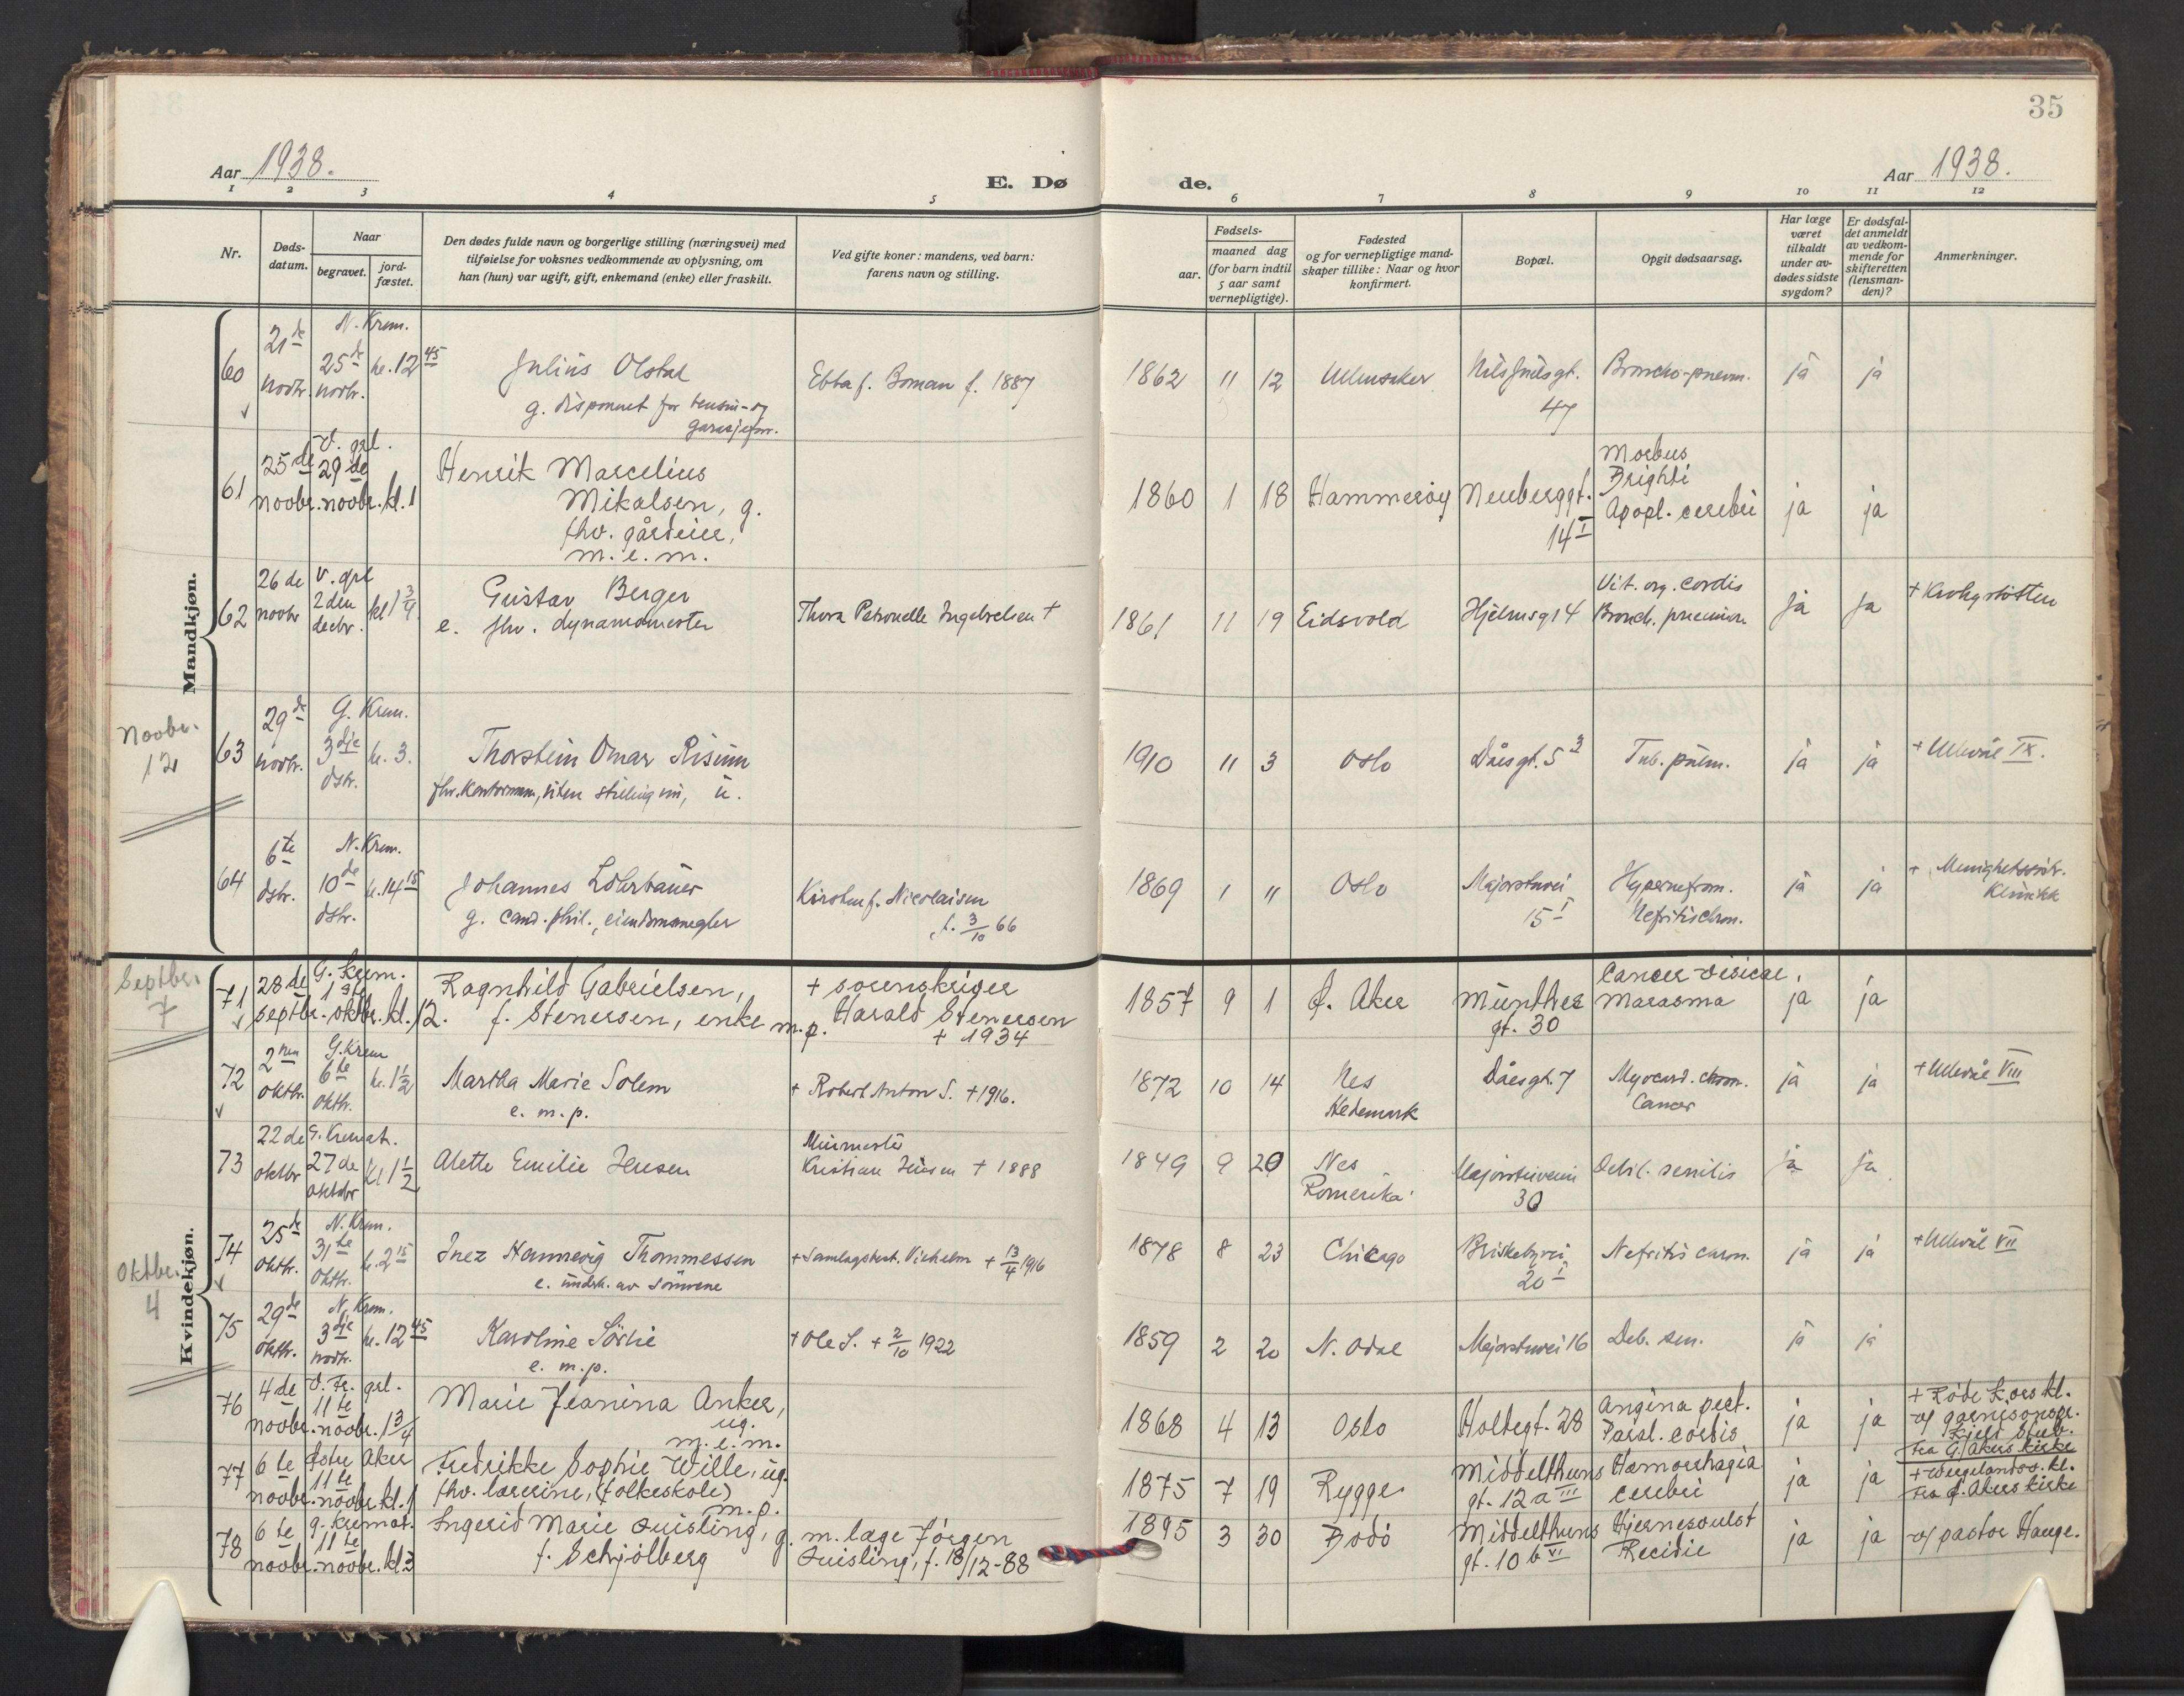 35
Aar 1938.
E. Døde.
Aar 1938.
1 2 3 4 5 6 7 8 9 10 11 12
Nr.
Døds-
datum.
Naar
begravet.
jord-
fæstet.
Den dødes fulde navn og borgerlige stilling (næringsvei) med
tilføielse for voksnes vedkommende av oplysning, om
han (hun) var ugift, gift, enkemand (enke) eller fraskilt.
Ved gifte koner: mandens, ved barn:
farens navn og stilling.
Fødsels-
aar.
maaned dag
(for barn indtil
5 aar samt
vernepligtige).
Fødested
og for vernepligtige mand-
skaper tillike: Naar og hvor
konfirmert.
Bopæl.
Opgit dødsaarsag.
Har læge
været
tilkaldt
under av-
dødes sidste
sygdom?
Er dødsfal-
det anmeldt
av vedkom-
mende for
skifteretten
(lensman-
den)?
Anmerkninger.
Mandkjøn.
60
21de
novbr.
N. Krem.
25de
novbr.
kl. 12 45
Julius Olstad
g. disponent for bensin- og
garasjefor.
Ebba f. Boman f. 1887
1862 11 12
Ullensaker
Nils Juels gt.
47
Broncho-pneum.
ja ja
61
25de
novbr.
V. grl.
29de
novbr. kl. 1
Henrik Marcelius
Mikalsen, g.
fhv. gårdeier,
m. e. m.
1860 1 18
Hammerøy
Neuberggt.
14 I
Morbus
Brighti
Apopl. cerebri
ja ja
62
26de
novbr
V. grl
2den
decbr.
kl 1 3/4
Gustav Berger
e. fhv. dynamomester
Thora Petronelle Ingebretsen +
1861 11 19
Eidsvold
Hjelmsgt 4
Vit. org. cordis
Bronch. pneumon
ja ja
+ Krohgstøtten
Novbr.
12
63
29de
novbr.
G. Krem.
3dje
dsbr.
kl. 3.
Thorstein Omar Risum
fhv. kontormann, uten stilling nu, u.
1910 11 3
Oslo
Dåsgt. 5 3
Tub. pulm.
ja ja
+ Ullevål IX.
64
6te
dsbr.
N. Krem.
10de
dsbr.
kl. 14 15
Johannes Lohrbauer
g. cand. phil., eiendomsmegler
Kirsten f. Nicolaisen
f. 3/10 66
1869 1 11
Oslo
Majorstuvei
15 I
Hypernefrom.
Nefritis chron.
ja ja
+ Menighetssøstr.
Klinikk
Kvindekjøn.
Septbr.
7
71
28de
septbr.
G. krem.
1ste
oktbr. kl. 12.
Ragnhild Gabrielsen,
f. Stenersen, enke m. p.
+ sorenskriver
Harald Stenersen
+ 1934
1857 9 1
Ø. Aker
Munthes
gt. 30
Cancer vesicae.
Marasma
ja ja
72
2nen
oktbr.
G. Krem
6te
oktbr.
kl. 1 1/2
Martha Marie Solem
e. m. p.
+ Robert Anton S. + 1916.
1872 10 14
Nes
Hedemark
Dåsgt. 7
Myocard. chron.
Cancer
ja ja
+ Ullevål VIII
73
22de
oktbr
G. Kremat.
27de
oktobr
kl 1 1/2
Alette Emilie Jensen
Murmester
Kristian Jensen + 1888
1849 9 20
Nes
Romerike
Majorstuveien
30
Debil. senilis
ja ja
Oktbr.
4
74
25de
oktbr.
N. Krem.
31te
oktbr.
kl. 2 15
Inez Hannevig Thommessen
e. underh. av sønnene
+ Samlagsbest. Vilhelm + 13/4 1916
1878 8 23
Chicago
Briskebyvei
20 I
Nefritis chron.
ja ja
+ Ullevål VII
75
29de
oktbr.
N. Krem.
3dje
novbr.
kl. 12 45
Karoline Sørlie
e. m. p.
+ Ole S. + 2/10 1922
1859 2 20
N. Odal
Majorstuvei 16
Deb. sen.
ja ja
76
4de
novbr.
V. Fr. grl.
11te
novbr. 1 3/4
Marie Jeanina Anker,
ug.
m. e. m.
1868 4 13
Oslo
Holtegt. 28
Angina pect.
Paral. cordis
ja ja
+ Røde Kors kl.
v/ garnisonspr.
Kjeld Stub.
fra G. Akers kirke
77
6te
novbr.
Østre Aker
11te
novbr. kl. 1
Fredrikke Sophie Wille, ug.
fhv. lærerine, (folkeskole)
m. p.
1875 7 19
Rygge
Middelthuns
gt. 12 a III
Hæmorrhagia
cerebri
ja ja
+ Wergelandsv. kl.
fra Ø. Akers kirke
78
6te
novbr.
g. kremat.
11te
novbr. kl 3
Ingerid Marie Quisling, g.
f. Schjølberg
m. læge Jørgen
Quisling, f. 18/12-88
1895 3 30
Bodø
Middelthuns
gt. 10 b VI
Hjernesvulst
Recidiv
ja ja
v/ pastor Hauge.